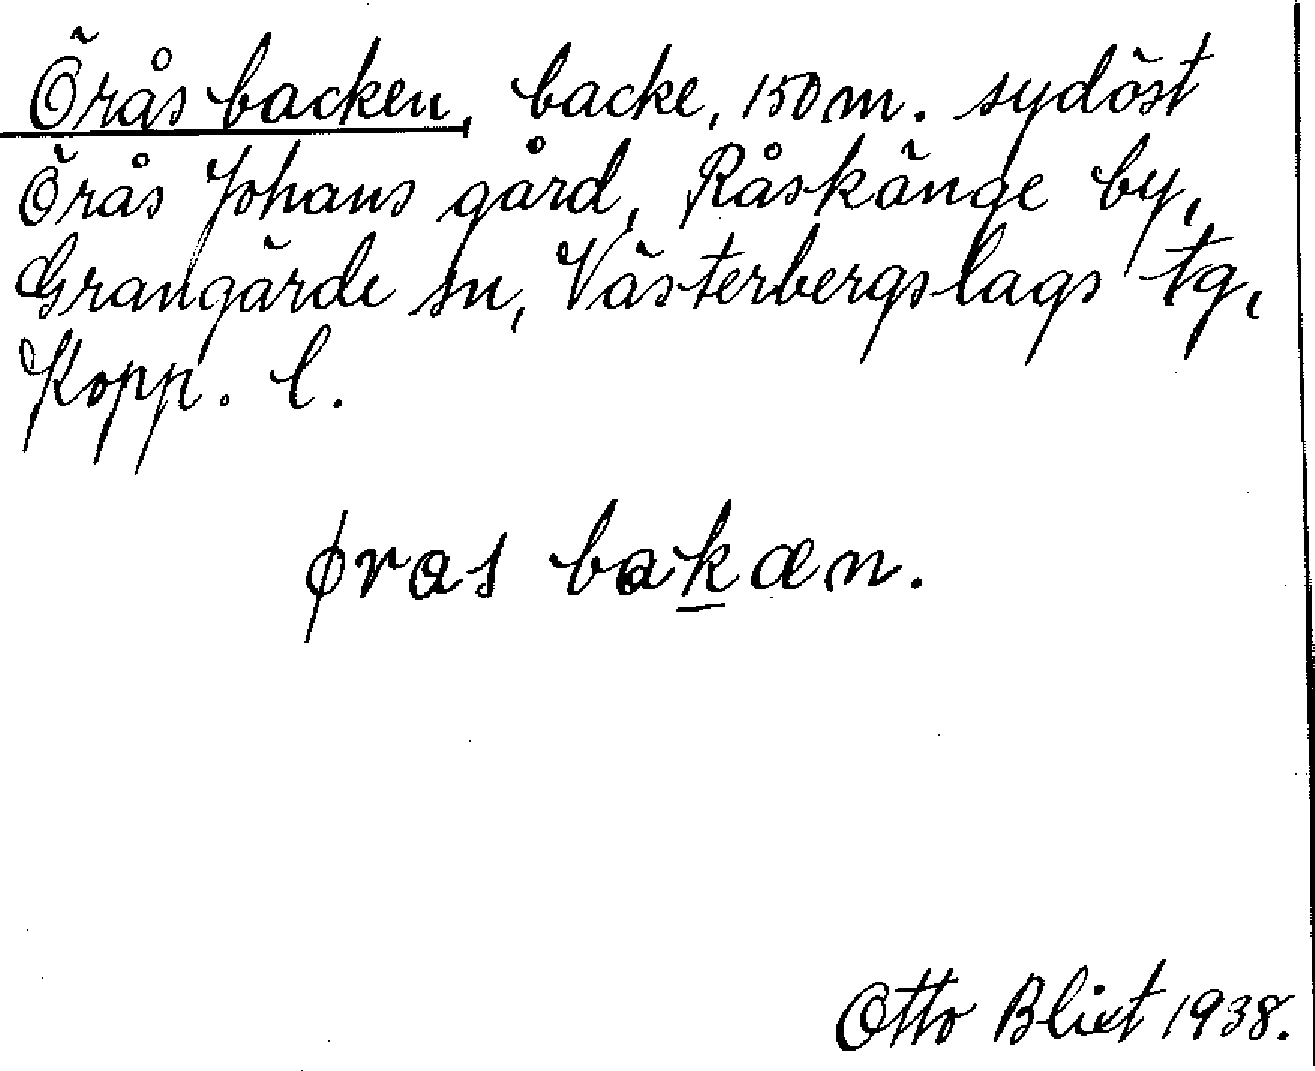 Öråsbacken, backe, 150 m. sydöst
Örås Johans gård, Råskänge by,
Grangärde sn, Västerbergslags tg,
Kopp. l.
øras bakæn.
Otto Blixt 1938.